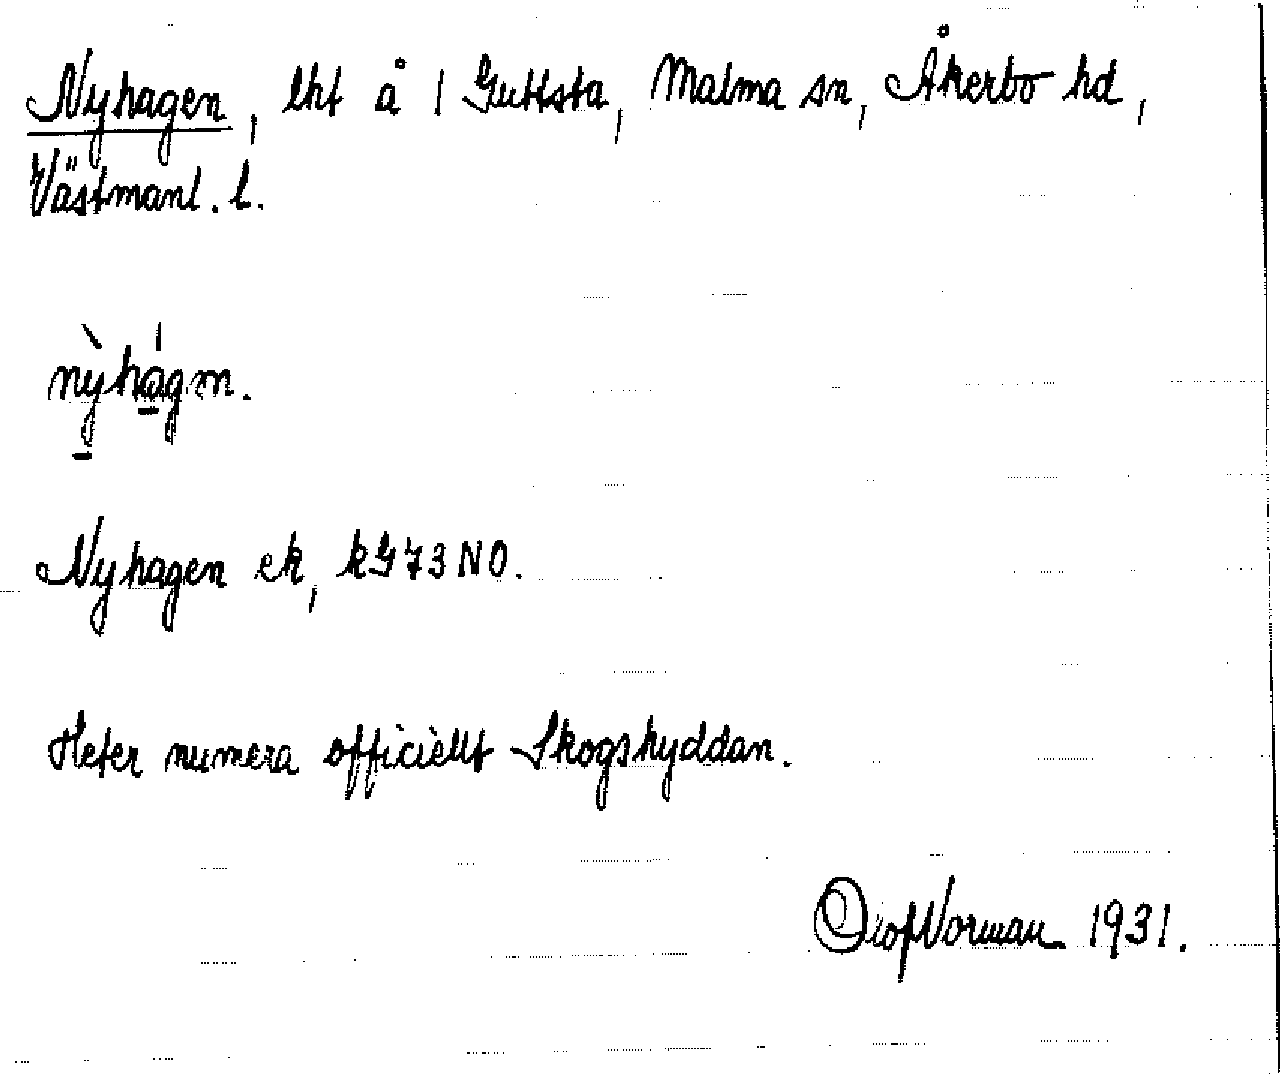 Nyhagen, lht å 1 Guttsta, Malma sn, Åkerbo hd,
Västmanl. l.
nỳhágṇ.
Nyhagen ek, kG73NO.
Heter numera officiellt Skogshyddan.
Olof Vorman 1931.